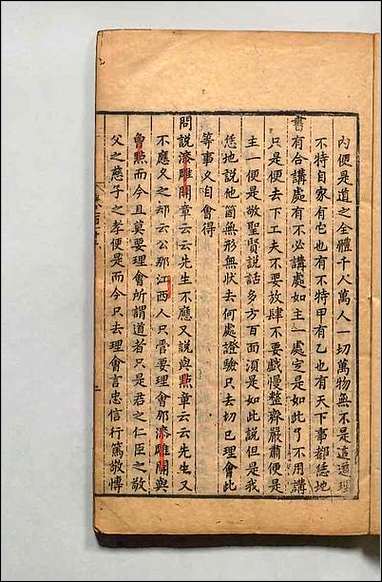 內便是道之全體千人萬人一切萬物無不是這道理
不特自家有它也有不特甲有乙也有天下事都恁地
書有合講處有不必講處如主一處定是如此了不用講
只是便去下工夫不要放肆不要戲慢整齊嚴肅便是
主一便是敬聖賢說話多方百面須是如此說但是我
恁地說他箇無形無狀去何處證驗只去切己理會此
等事久自會得
問說漆雕開章云云先生不應又說與點章云云先生又
不應久之却云公那江西人只管要理會那漆雕開與
曾點而今且莫要理會所謂道者只是君之仁臣之敬
父之慈子之孝便是而今只去理會言忠信行篤敬博